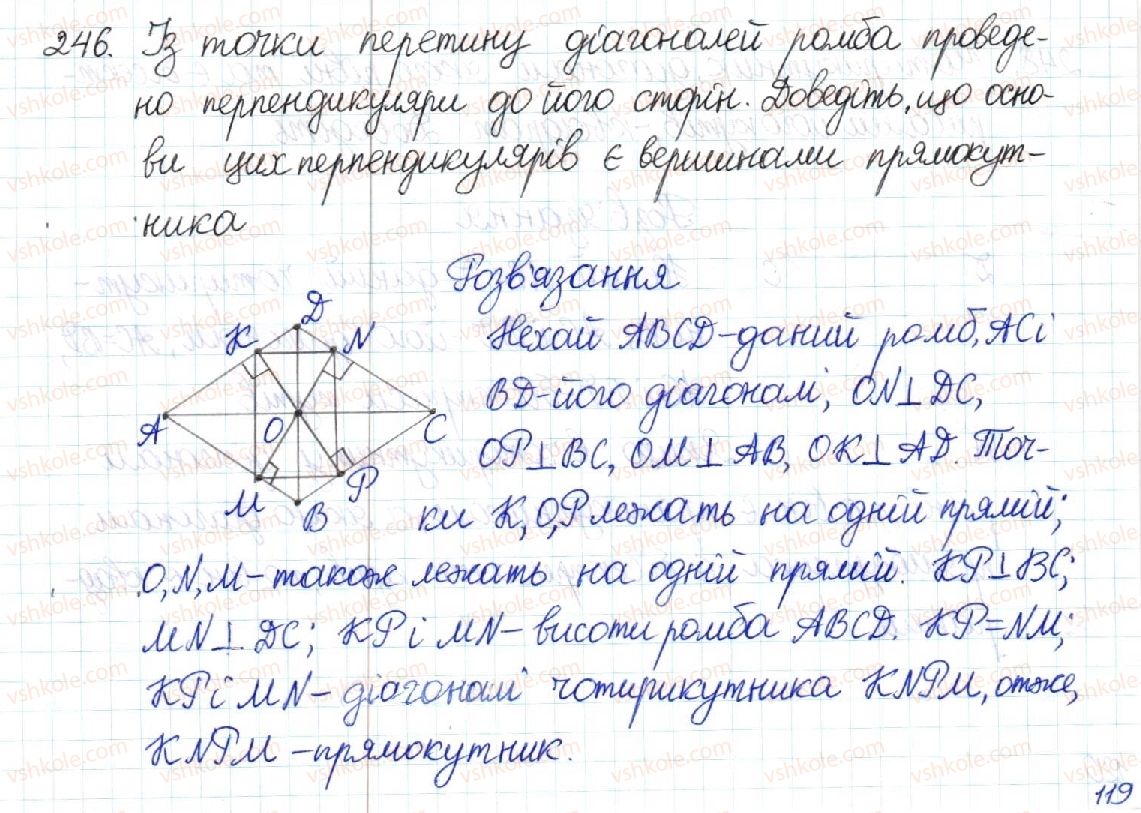 246. Із точки перетину діагоналей ромба проведе-
но перпендикуляри до його сторін. Доведіть, що осно-
ви цих перпендикулярів є вершинами прямокут-
ника
Розв'язання
D
K N
A O C
M P
B
Нехай ABCD-даний ромб, AC і
BD-його діагоналі, ON⊥DC,
OP⊥BC, OM⊥AB, OK⊥AD. Точ-
ки K, O, P лежать на одній прямій;
O, N, M - також лежать на одній прямій. KP⊥BC;
MN⊥DC; KP і MN - висоти ромба ABCD. KP=NM;
KP і MN - діагоналі чотирикутника KNPM, отже,
KNPM - прямокутник.
119